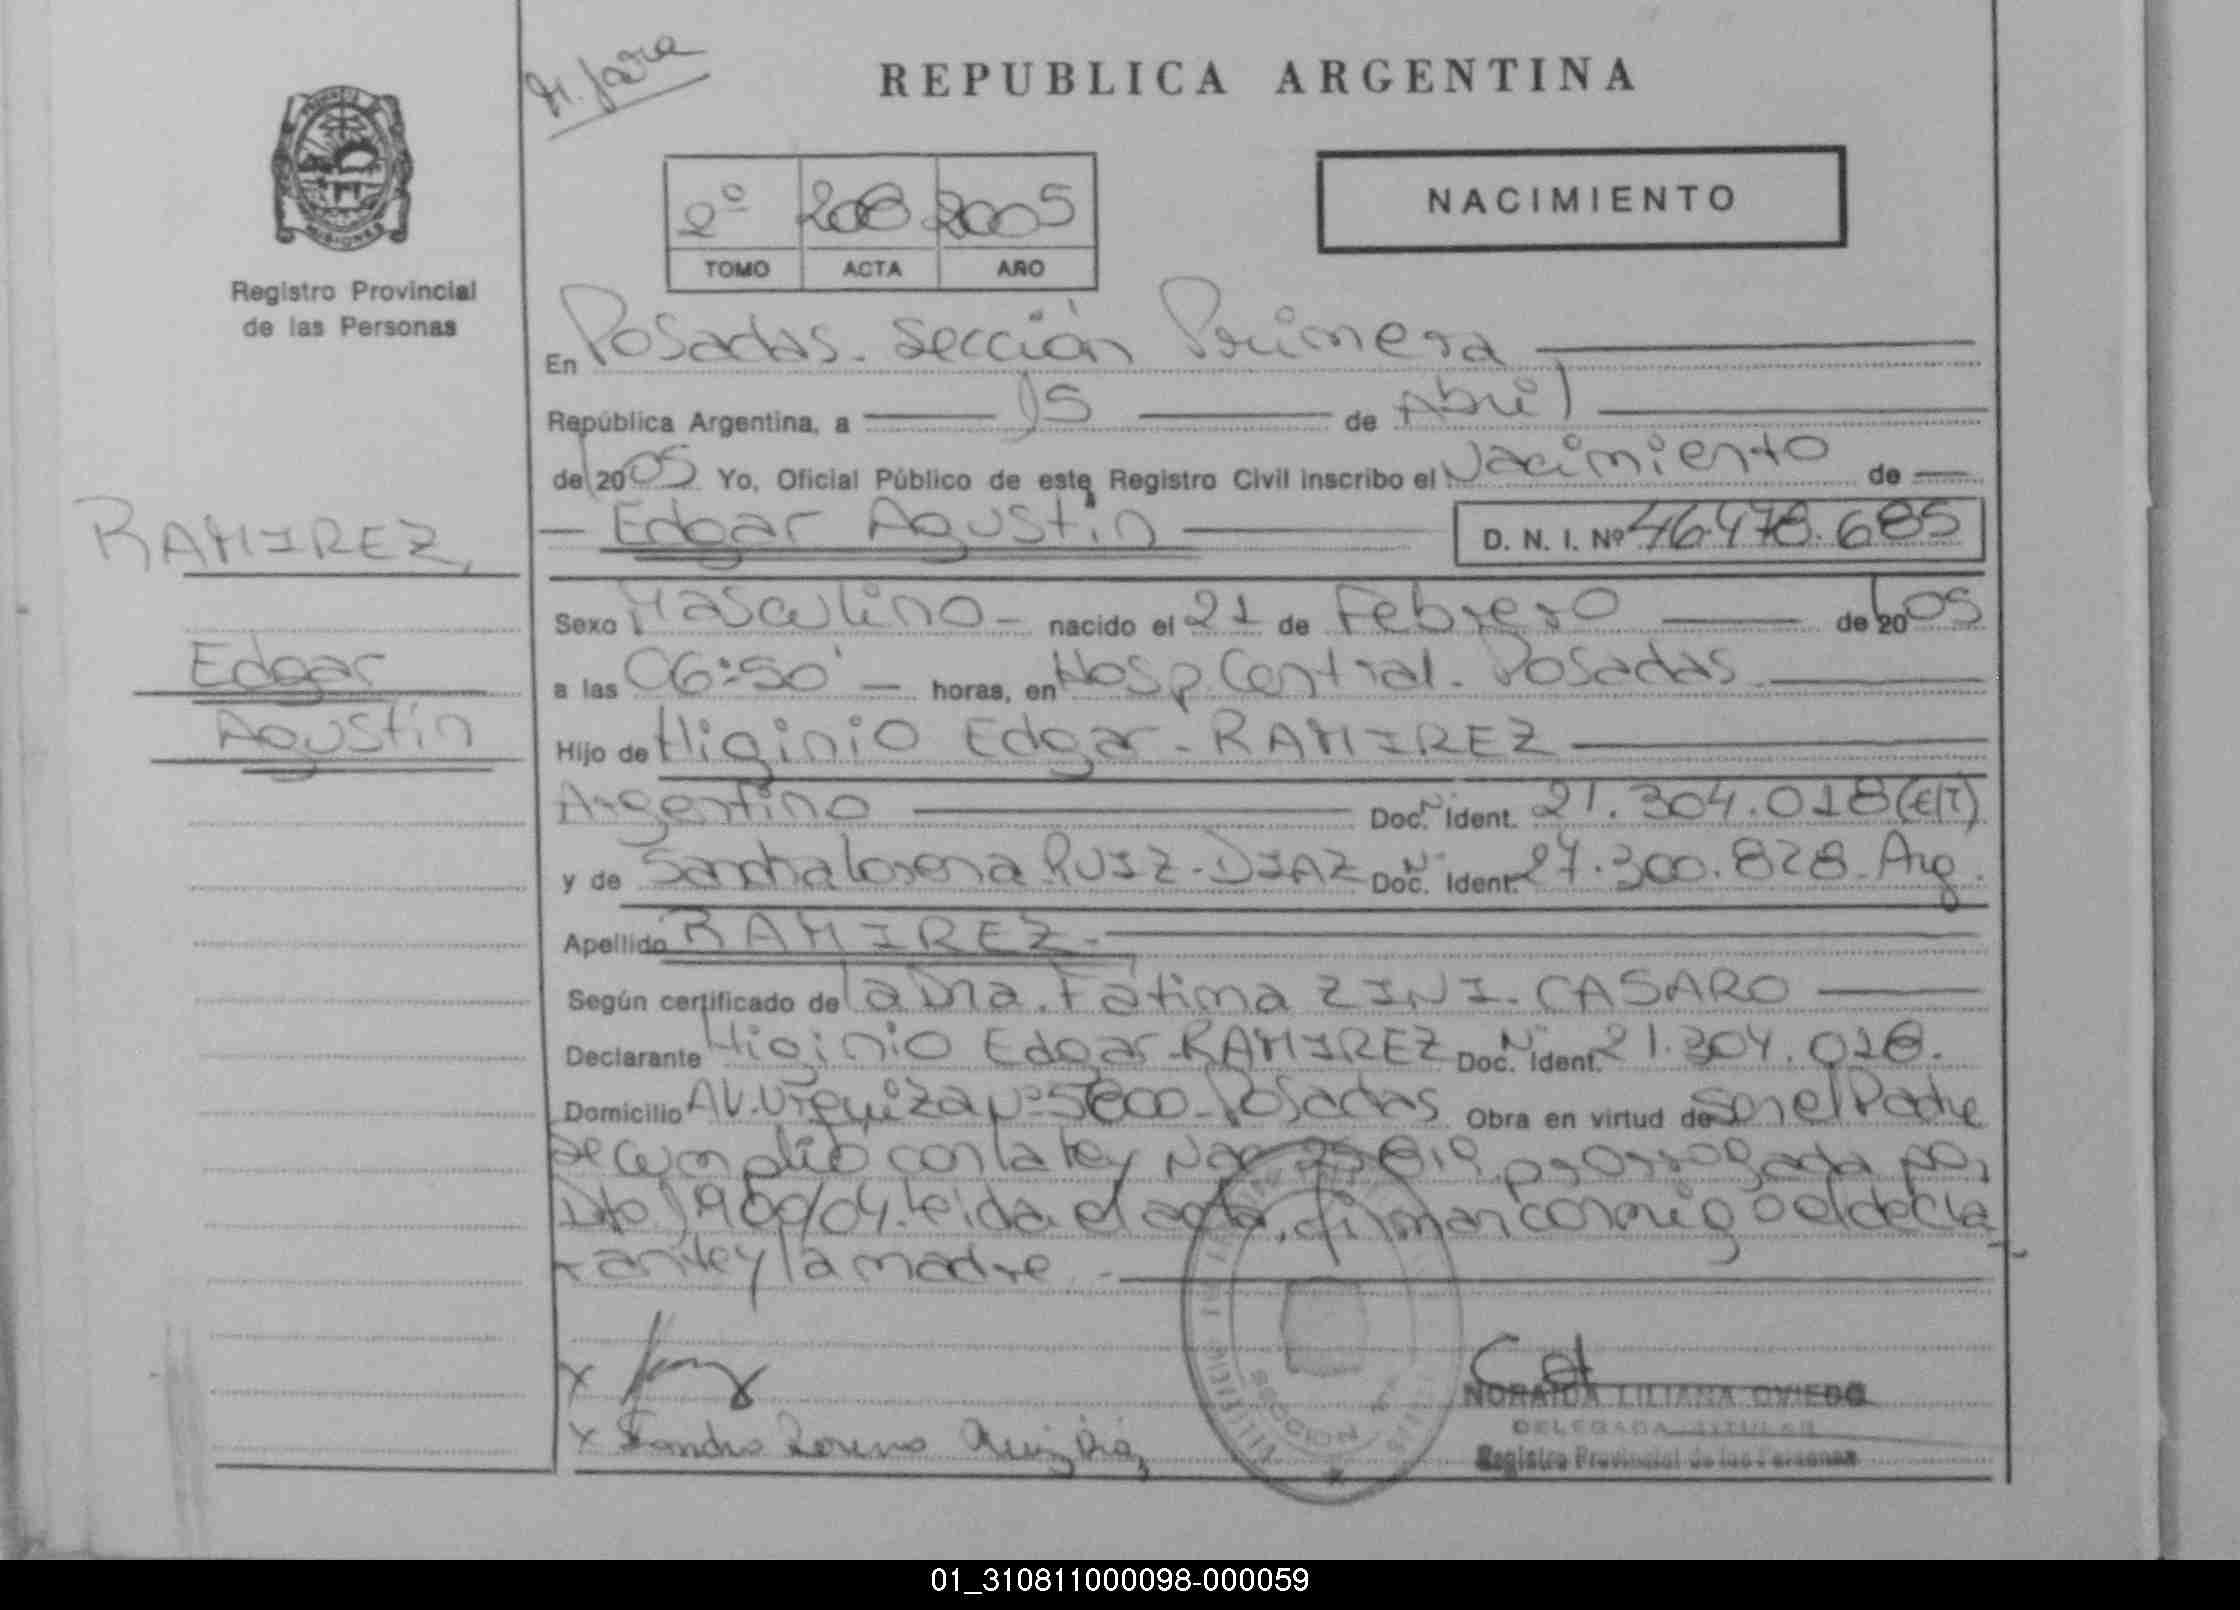 H. Jara
REPUBLICA ARGENTINA
MISIONES
Registro Provincial
de las Personas
2º 208 2005
TOMO ACTA AÑO
NACIMIENTO
En Posadas. Sección Primera
República Argentina, a 15 de Abril
de 2005 Yo, Oficial Público de este Registro Civil inscribo el Nacimiento de
Edgar Agustín D. N. I. Nº 46.478.685
RAMIREZ,
Edgar
Agustín
Sexo Masculino - nacido el 21 de Febrero de 2005
a las 06:50' horas, en Hosp. Central. Posadas
Hijo de Higinio Edgar - RAMIREZ
Argentino Doc. Nº Ident. 21.304.018 (E/T)
y de Sandra Lorena RUIZ - DIAZ Doc. Nº Ident. 27.300.828 - Arg.
Apellido RAMIREZ -
Según certificado de la Dra. Fátima ZINI - CASARO
Declarante Higinio Edgar - RAMIREZ Doc. Nº Ident. 21.304.018.
Domicilio AV. Urquiza Nº 5800 - Posadas Obra en virtud de Ser el Padre
se cumplió con la ley Nac 25.819 prorrogada por
Dto 1900/04. leida el acta, firman conmigo el decla
rante y la madre
Sandra Lorena Ruiz Diaz
NORAIDA LILIANA OVIEDO
DELEGADA TITULAR
Registro Provincial de las Personas
01_310811000098-000059